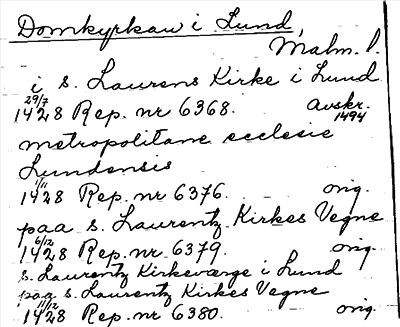 Domkyrkan i Lund,
Malm. l.
i s. Laurens Kirke i Lund
29/7
1428 Rep. nr 6368. Avskr. 1494
metropolitane ecclesie
Lundensis
1/11
1428 Rep. nr 6376. orig.
paa s. Laurentz Kirkes Vegne
6/12
1428 Rep. nr 6379. orig.
s. Laurentz Kirkeværge i Lund
paa s. Laurentz Kirkes Vegne
11/12
1428 Rep. nr 6380. orig.